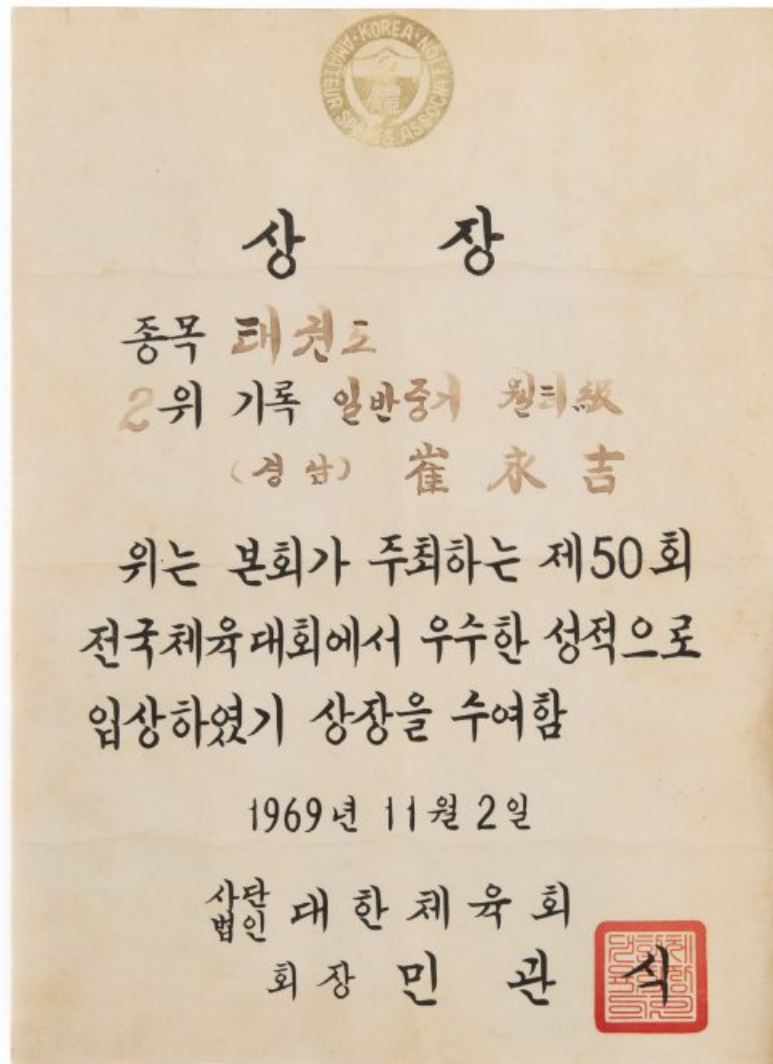 KOREA AMATEUR SPORTS ASSOCIATION
상 장
종목 태권도
2위 기록 일반중기 웰터級
(경남) 崔永吉
위는 본회가 주최하는 제50회
전국체육대회에서 우수한 성적으로
입상하였기 상장을 수여함
1969년 11월 2일
사단법인 대한체육회
회장 민관식